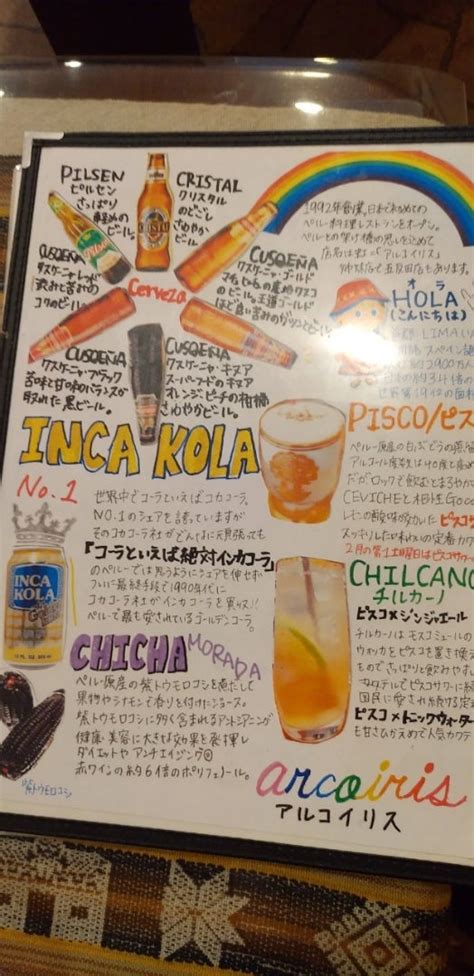 PILSEN
ピルセン
さっぱり
軽めの
ビール。
CRISTAL
クリスタル
のどごし
さわやか
ビール。
CUSQEÑA
クスケーニャ・レッド
コクのビール。
CUSQEÑA
クスケーニャ・ゴールド
マチュピチュの産地クスコ
のビール。王道ゴールド
ほど良い苦みのガッツとビール
Cerveza
CUSQEÑA
クスケーニャ・ブラック
苦味と甘味のバランスが
取れた黒ビール。
CUSQEÑA
クスケーニャ・キヌア
スーパーフードのキヌア
オレンジピーチの柑橘
さわやかビール。
1992年創業。日本で初めての
ペルー料理レストランをオープン。
ペルーとの架け橋の思いを込めて
店名は虹=「アルコイリス」
姉妹店も五反田にもあります。
オラ
HOLA
(こんにちは)
INCA KOLA
No.1
世界中でコーラといえばコカコーラ。
NO.1のシェアを誇っていますが
そのコカコーラ社がどんなに頑張っても
『コーラといえば絶対インカコーラ』
のペルーでは思うようにシェアを伸せず
ついに最終手段で1990年代に
コカコーラ社がインカコーラを買収!!
ペルーで最も愛されているゴールデンコーラ。
INCA
KOLA
PISCO/ピス
ペルー原産の白ぶどうの蒸
アルコール度数は40度と
だがロックで飲むとまろや
CEVICHEと相性GOO
レモンの酸味が効いたピスコ
スッキリした味わいの定番カク
2月の第1土曜日はピスコサワー
CHILCANO
チルカーノ
ピスコ×ジンジャエール
チルカーノはモスコミュール
ウォッカをピスコに置き換え
ものでさっぱりと飲みやす
カクテルでピスコサワーに続
国民に愛され続ける定
ピスコ×トニックウォーター
も甘さひかえめで人気カクテ
CHICHA
MORADA
ペルー原産の紫トウモロコシを煮だして
果物やシナモンで香りを付けたジュース。
紫トウモロコシに多く含まれるアントシアニン
健康・美容に大きな効果を発揮し
ダイエットやアンチエイジング◎
赤ワインの約6倍のポリフェノール。
紫トウモロコシ
arcoiris
アルコイリス